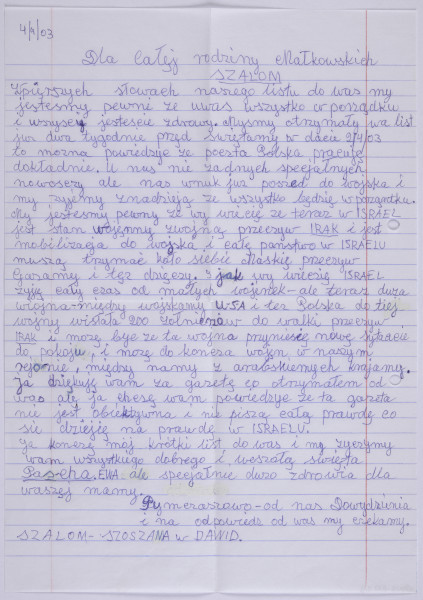 4/4/03
Dla całej rodziny Małkowskich
SZALOM
W pierszych słowach naszego listu do was my
jestesmy pewne ze uwas wszystko w porządku
i wszyscy jestescie zdrowy. Mysmy otrzymały wa list
już dwa tygodnie przed Swiętamy w dacie 2/4/03
to mozna powiedzyc ze poczta Polska pracuje
dokładnie. U nas nie zadnych specjalnych
nowosery ale nas wnuk już poszed do wojska i
my zyjemy znadzieją ze wszystko będzie w porządku.
My jestesmy pewny ze wy wiecie ze teraz w ISRAEL
jest stan wojenny zwojną przeciw IRAK i jest
mobilizacja do wojska i całe państwo w ISRAELU
muszą trzymac koło siebie Maskie przeciw
Gazamy i tez dzieczy. I jak wy wiecie ISRAEL
zyje cały czas od małych wojenek-ale teraz duza
wojna-między wojskamy USA i tez Polska do tiej
wojny wisłała 200 zołnierów do walki przeciw
IRAK i moze byc ze ta wojna przyniesie nowe
do pokoju, i moze do konca wojen w naszym
rejonie, między namy z arabskiemych krajamy.
Ja dziękuję wam za gazetę co otrzymałem od
was ale ja chcesę wam powiedzyc ze ta gazeta
nie jest obiektywna i nie piszą całą prawdę co
się dzieje na prawdę w ISRAELU.
Ja konczę mój krótki list do was i my zyczymy
wam wszystkiego dobrego i wesołą swięta
Pascha. EWA ale specjalnie duzo zdrowia dla
waszej mamy.
od nas Dowydzenia
i na odpowiedz od was my czekamy.
SZALOM- SZOSZANA w DAWID.